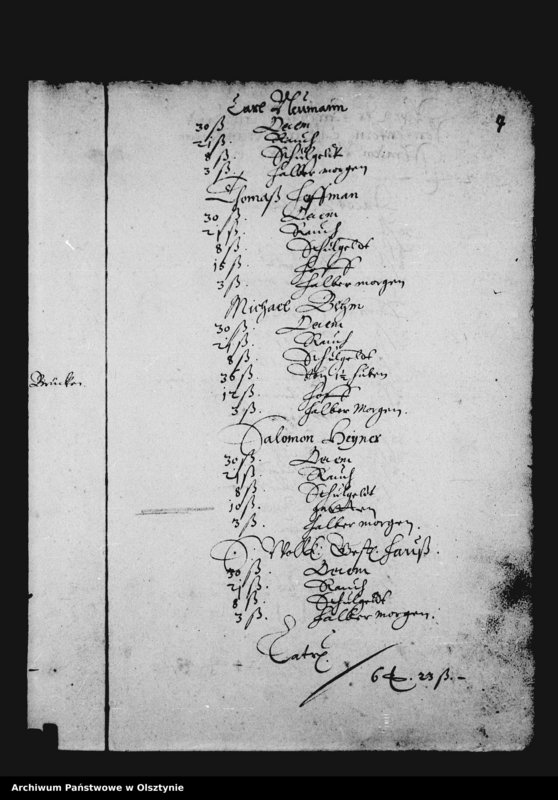 4
Carl Neumann
30 ß. Decem
21 ß. Rauch
8 ß. Schulgeldt
3 ß. halber morgen
Thomaß Hoffman
30 ß. Decem
21 ß. Rauch
8 ß. Schulgeldt
15 ß.
3 ß. halber morgen
Michael Behm
30 ß. Decem
21 ß. Rauch
8 ß. Schulgeldt
36 ß. huben
12 ß.
3 ß. halber Morgen.
Brucken
Salomon Heyner
30 ß. Decem
21 ß. Rauch
8 ß. Schulgeldt
10 ß. garten
3 ß. halber morgen.
hauß.
30 ß. Decem
21 ß. Rauch
8 ß. Schulgeldt
3 ß. halber morgen.
6 23 ß.
Archiwum Państwowe w Olsztynie